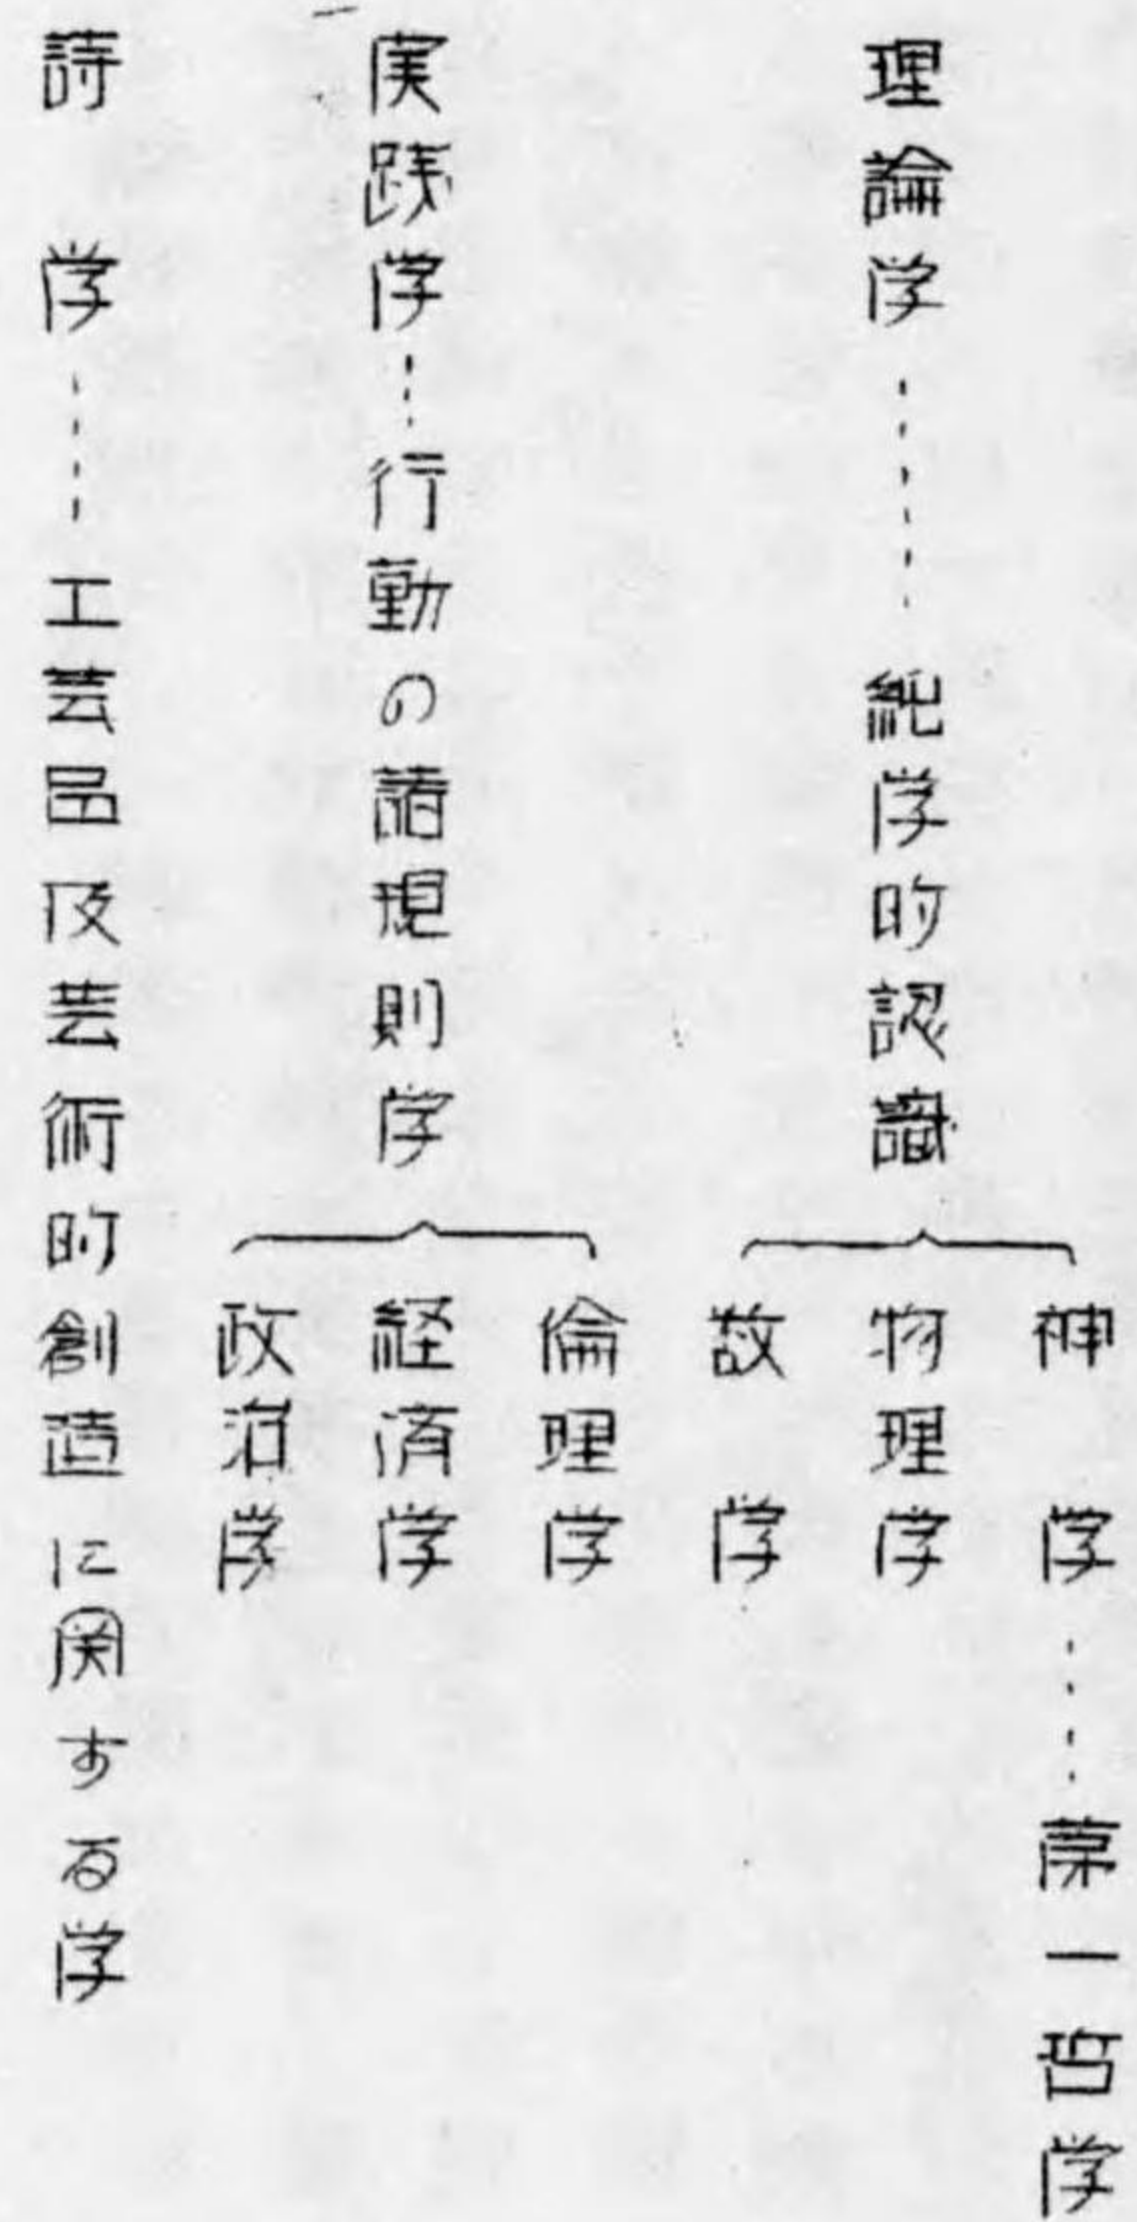 理論学……純学的認識
神学……第一哲学
物理学
数学
実践学…行動の諸規則学
倫理学
経済学
政治学
詩学……工芸品及芸術的創造に関する学